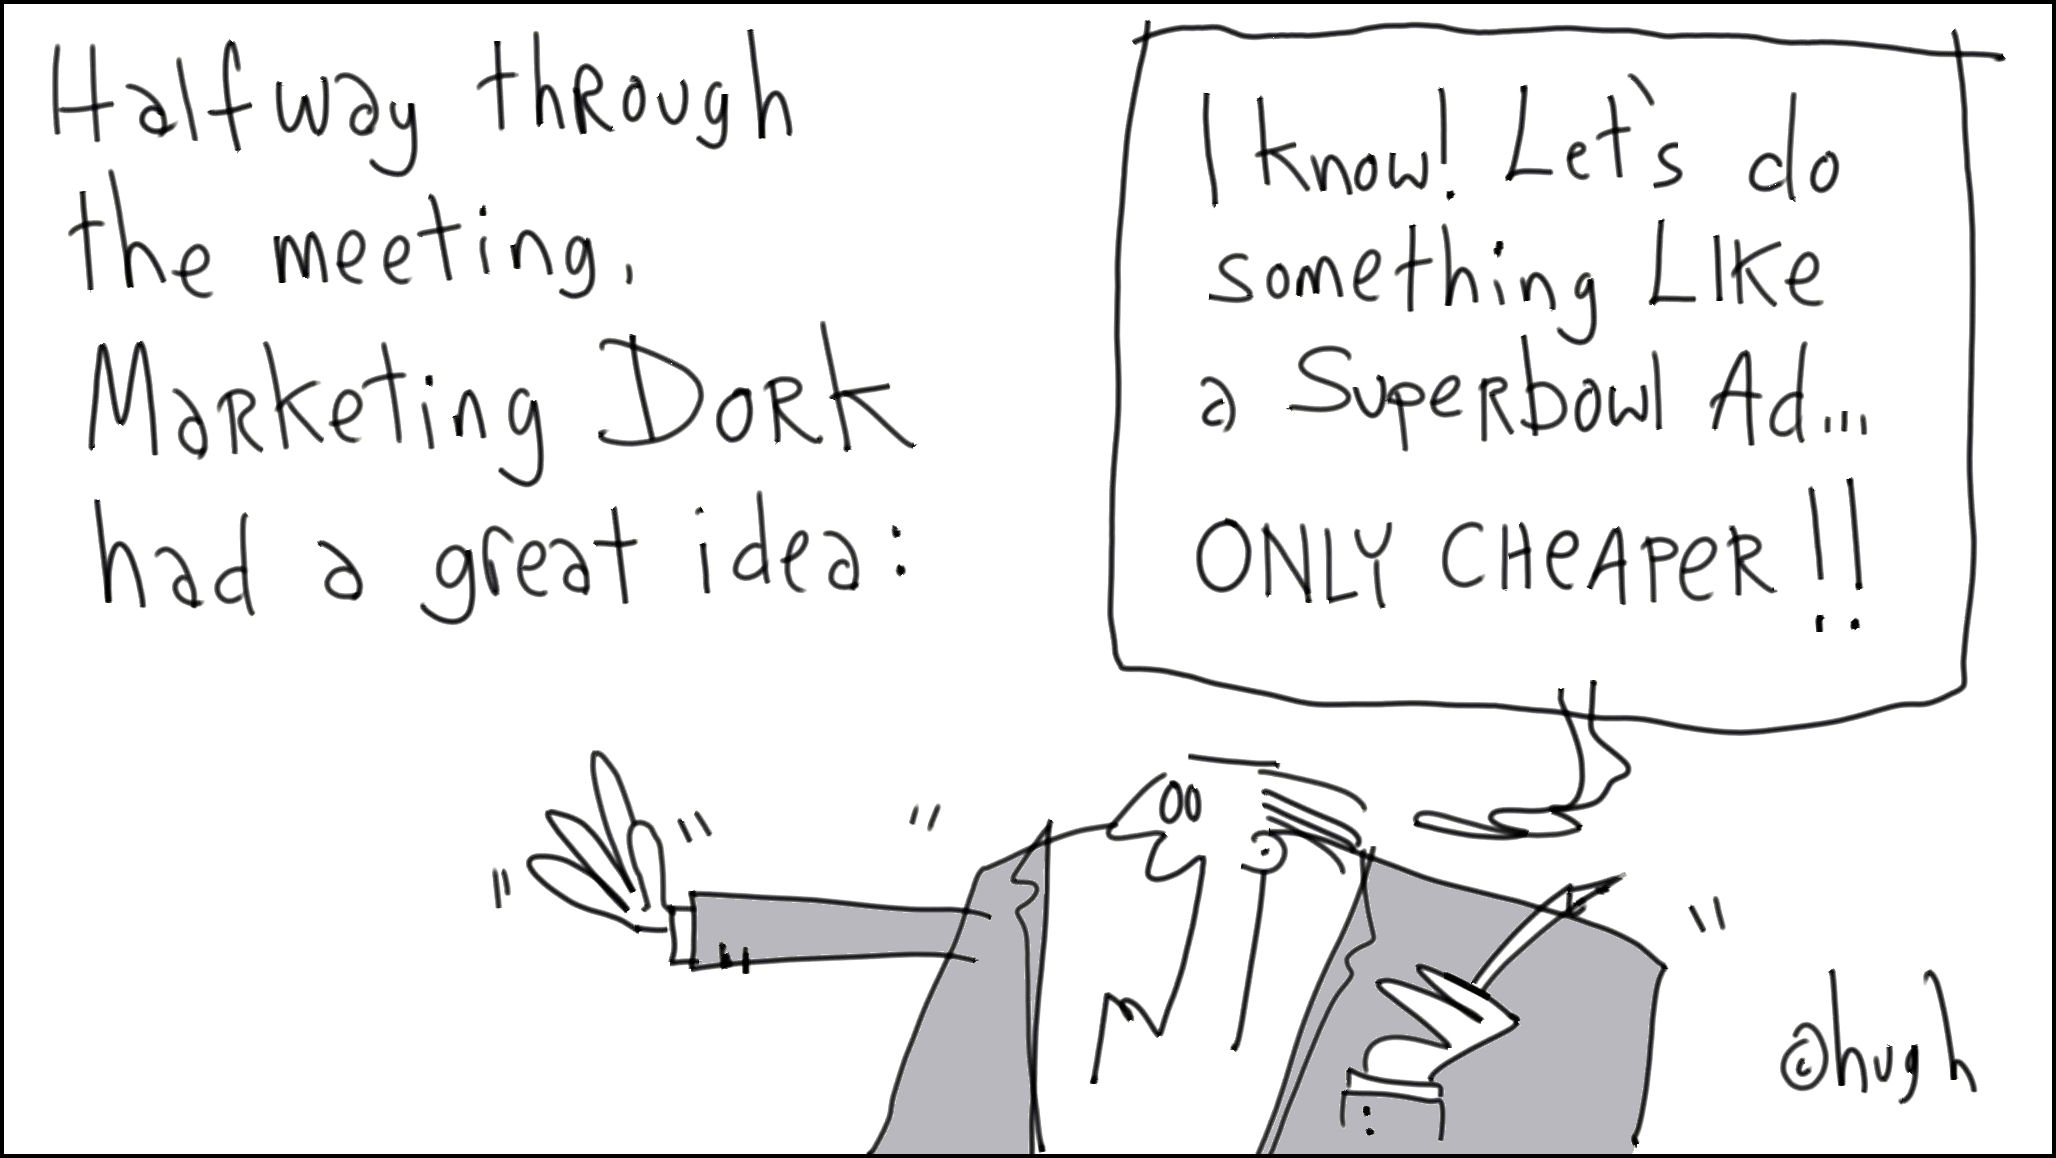 Halfway through
the meeting,
Marketing Dork
had a great idea:
I know! Let's do
something Like
a Superbowl Ad...
ONLY CHEAPER!!
©hugh